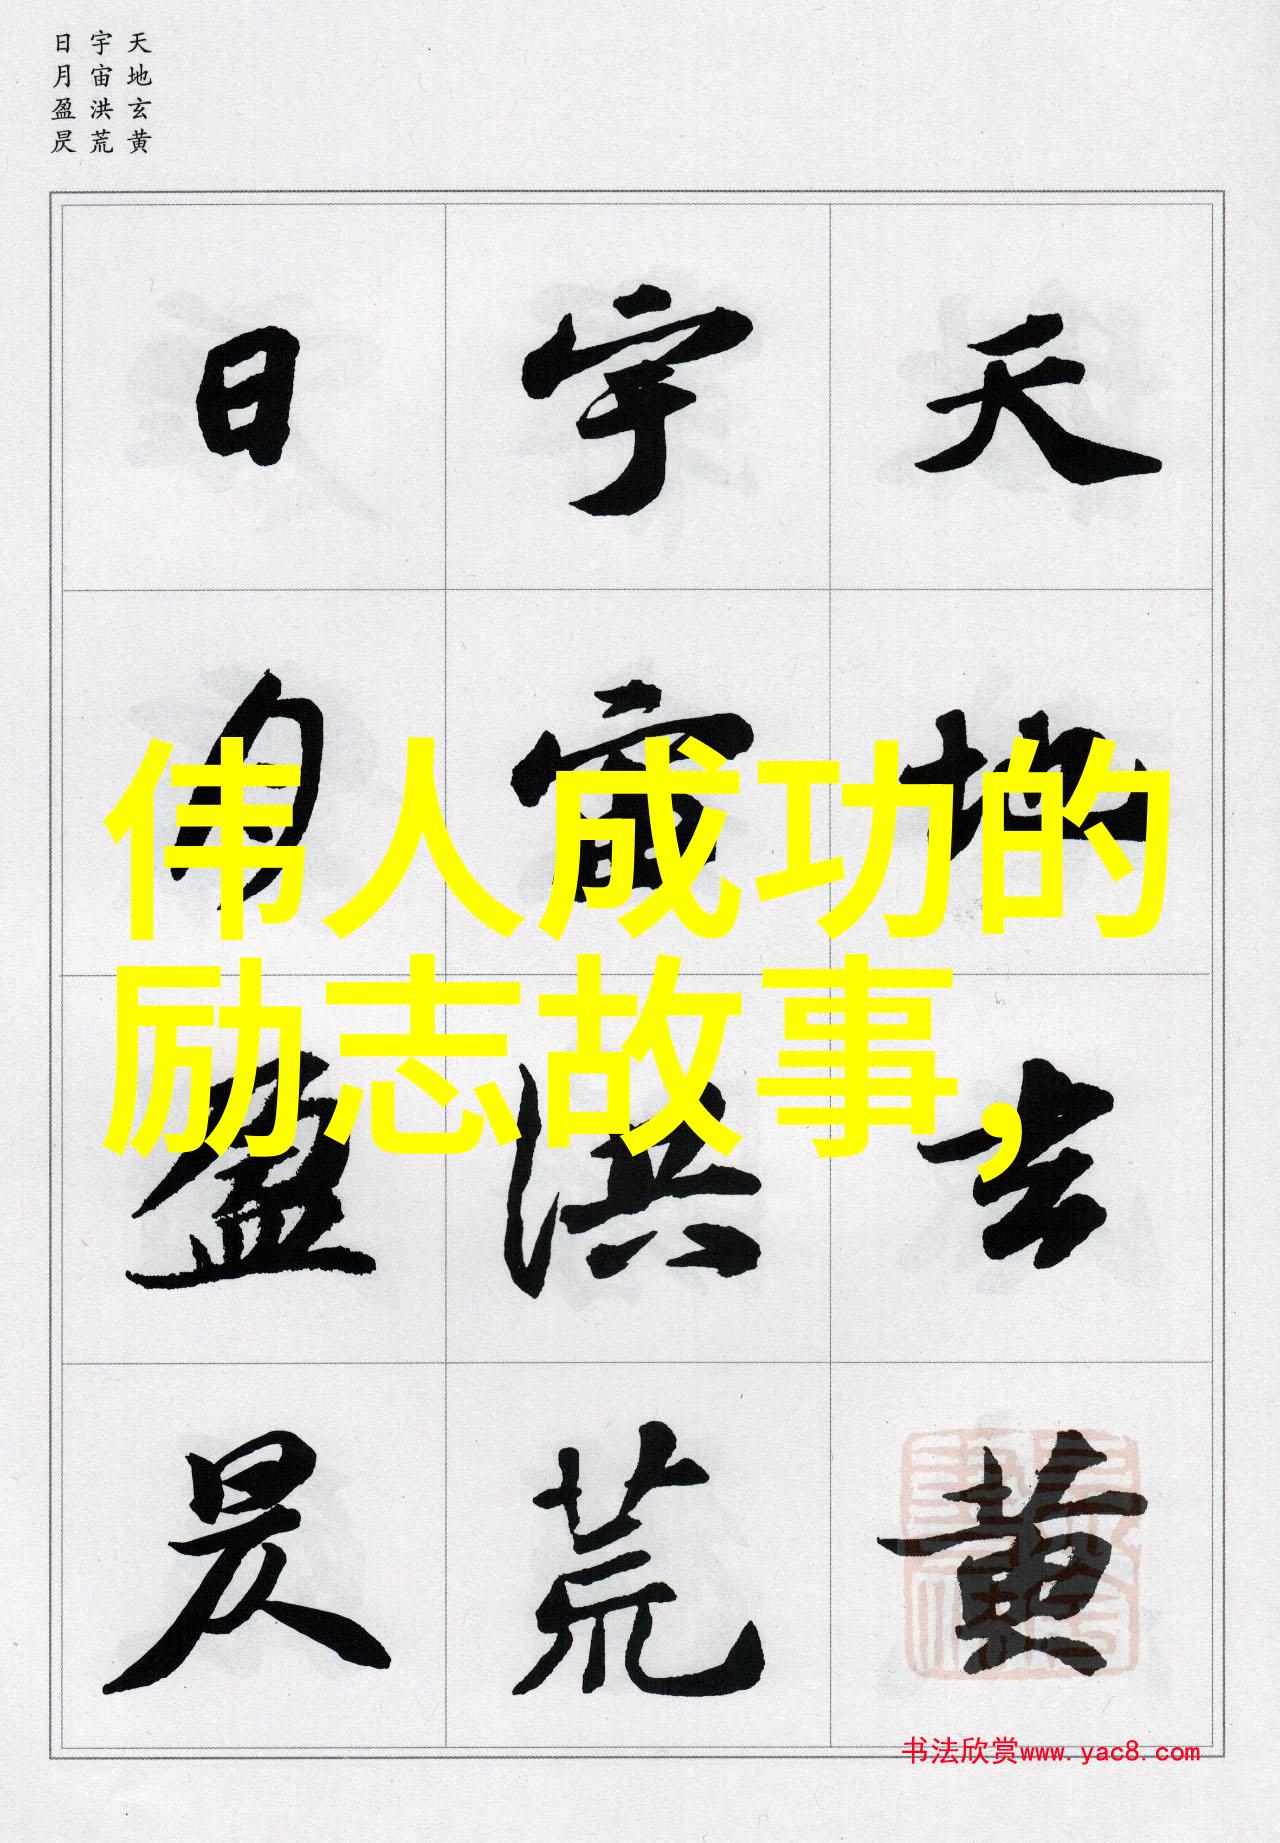 天地玄黄
宇宙洪荒
日月盈昃
天地玄黄
宇宙洪荒
日月盈昃
伟人成功的
励志故事,
书法欣赏www.yac8.com